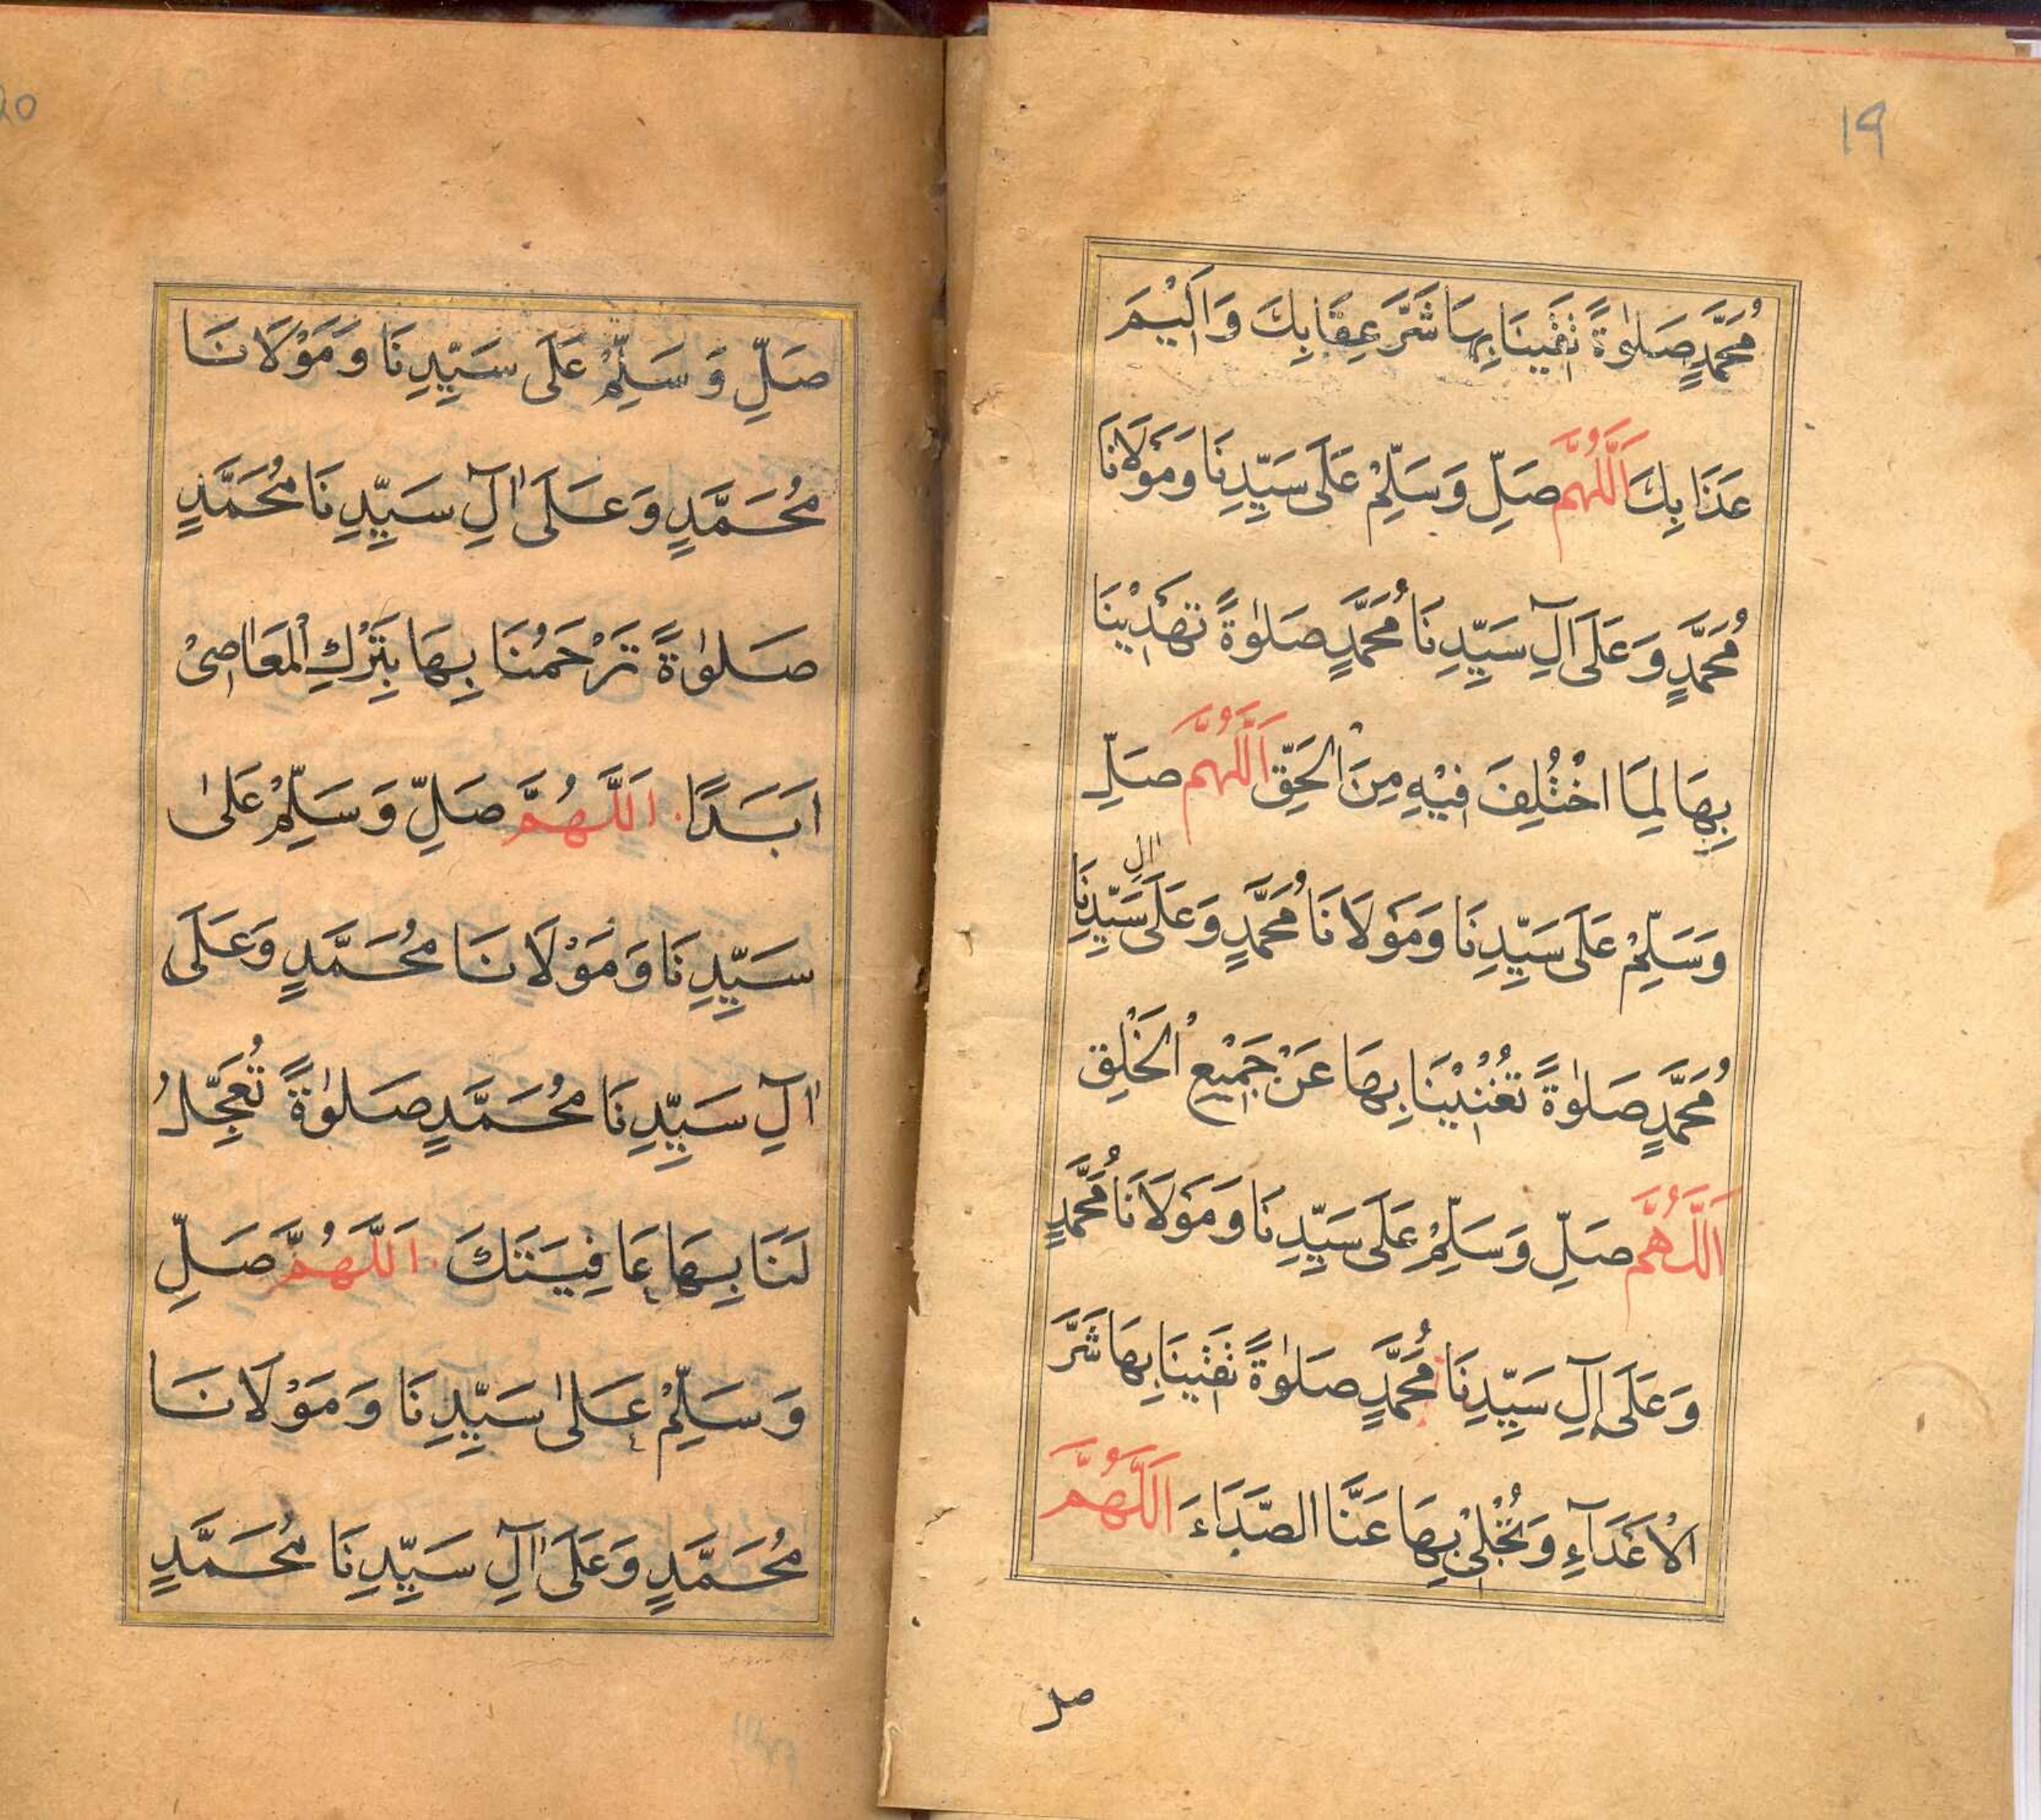 19
مُحَمَّدٍ صَلوٰةً تَقِيْنَا بِهَا شَرَّ عِقَابِكَ وَاَلِيْمَ
عَذَابِكَ اَللّٰهُمَّ صَلِّ وَسَلِّمْ عَلَى سَيِّدِنَا وَمَوْلَانَا
مُحَمَّدٍ وَعَلَى اٰلِ سَيِّدِنَا مُحَمَّدٍ صَلٰوةً تَهْدِيْنَا
بِهَا لِمَا اخْتُلِفَ فِيْهِ مِنَ الْحَقِّ اَللّٰهُمَّ صَلِّ
وَسَلِّمْ عَلَى سَيِّدِنَا وَمَوْلَانَا مُحَمَّدٍ وَعَلَى اٰلِ سَيِّدِنَا
مُحَمَّدٍ صَلٰوةً تُغْنِيْنَا بِهَا عَنْ جَمِيْعِ الْخَلْقِ
اَللّٰهُمَّ صَلِّ وَسَلِّمْ عَلَى سَيِّدِنَا وَمَوْلَانَا مُحَمَّدٍ
وَعَلَى اٰلِ سَيِّدِنَا مُحَمَّدٍ صَلٰوةً تَقِيْنَا بِهَا شَرَّ
الْاَعْدَآءِ وَتُجْلِيْ بِهَا عَنَّا الصَّدَاءَ اَللّٰهُمَّ
صل
20
صَلِّ وَ سَلِّمْ عَلَى سَيِّدِنَا وَمَوْلَانَا
مُحَمَّدٍ وَعَلَى اٰلِ سَيِّدِنَا مُحَمَّدٍ
صَلوٰةً تَرْحَمُنَا بِهَا بِتَرْكِ الْمَعَاصِيْ
اَبَدًا. اَللّٰهُمَّ صَلِّ وَ سَلِّمْ عَلٰى
سَيِّدِنَا وَ مَوْلَانَا مُحَمَّدٍ وَعَلَى
اٰلِ سَيِّدِنَا مُحَمَّدٍ صَلوٰةً تُعَجِّلُ
لَنَا بِهَا عَافِيَتَكَ. اَللّٰهُمَّ صَلِّ
وَ سَلِّمْ عَلٰى سَيِّدِنَا وَ مَوْلَانَا
مُحَمَّدٍ وَعَلَى اٰلِ سَيِّدِنَا مُحَمَّدٍ